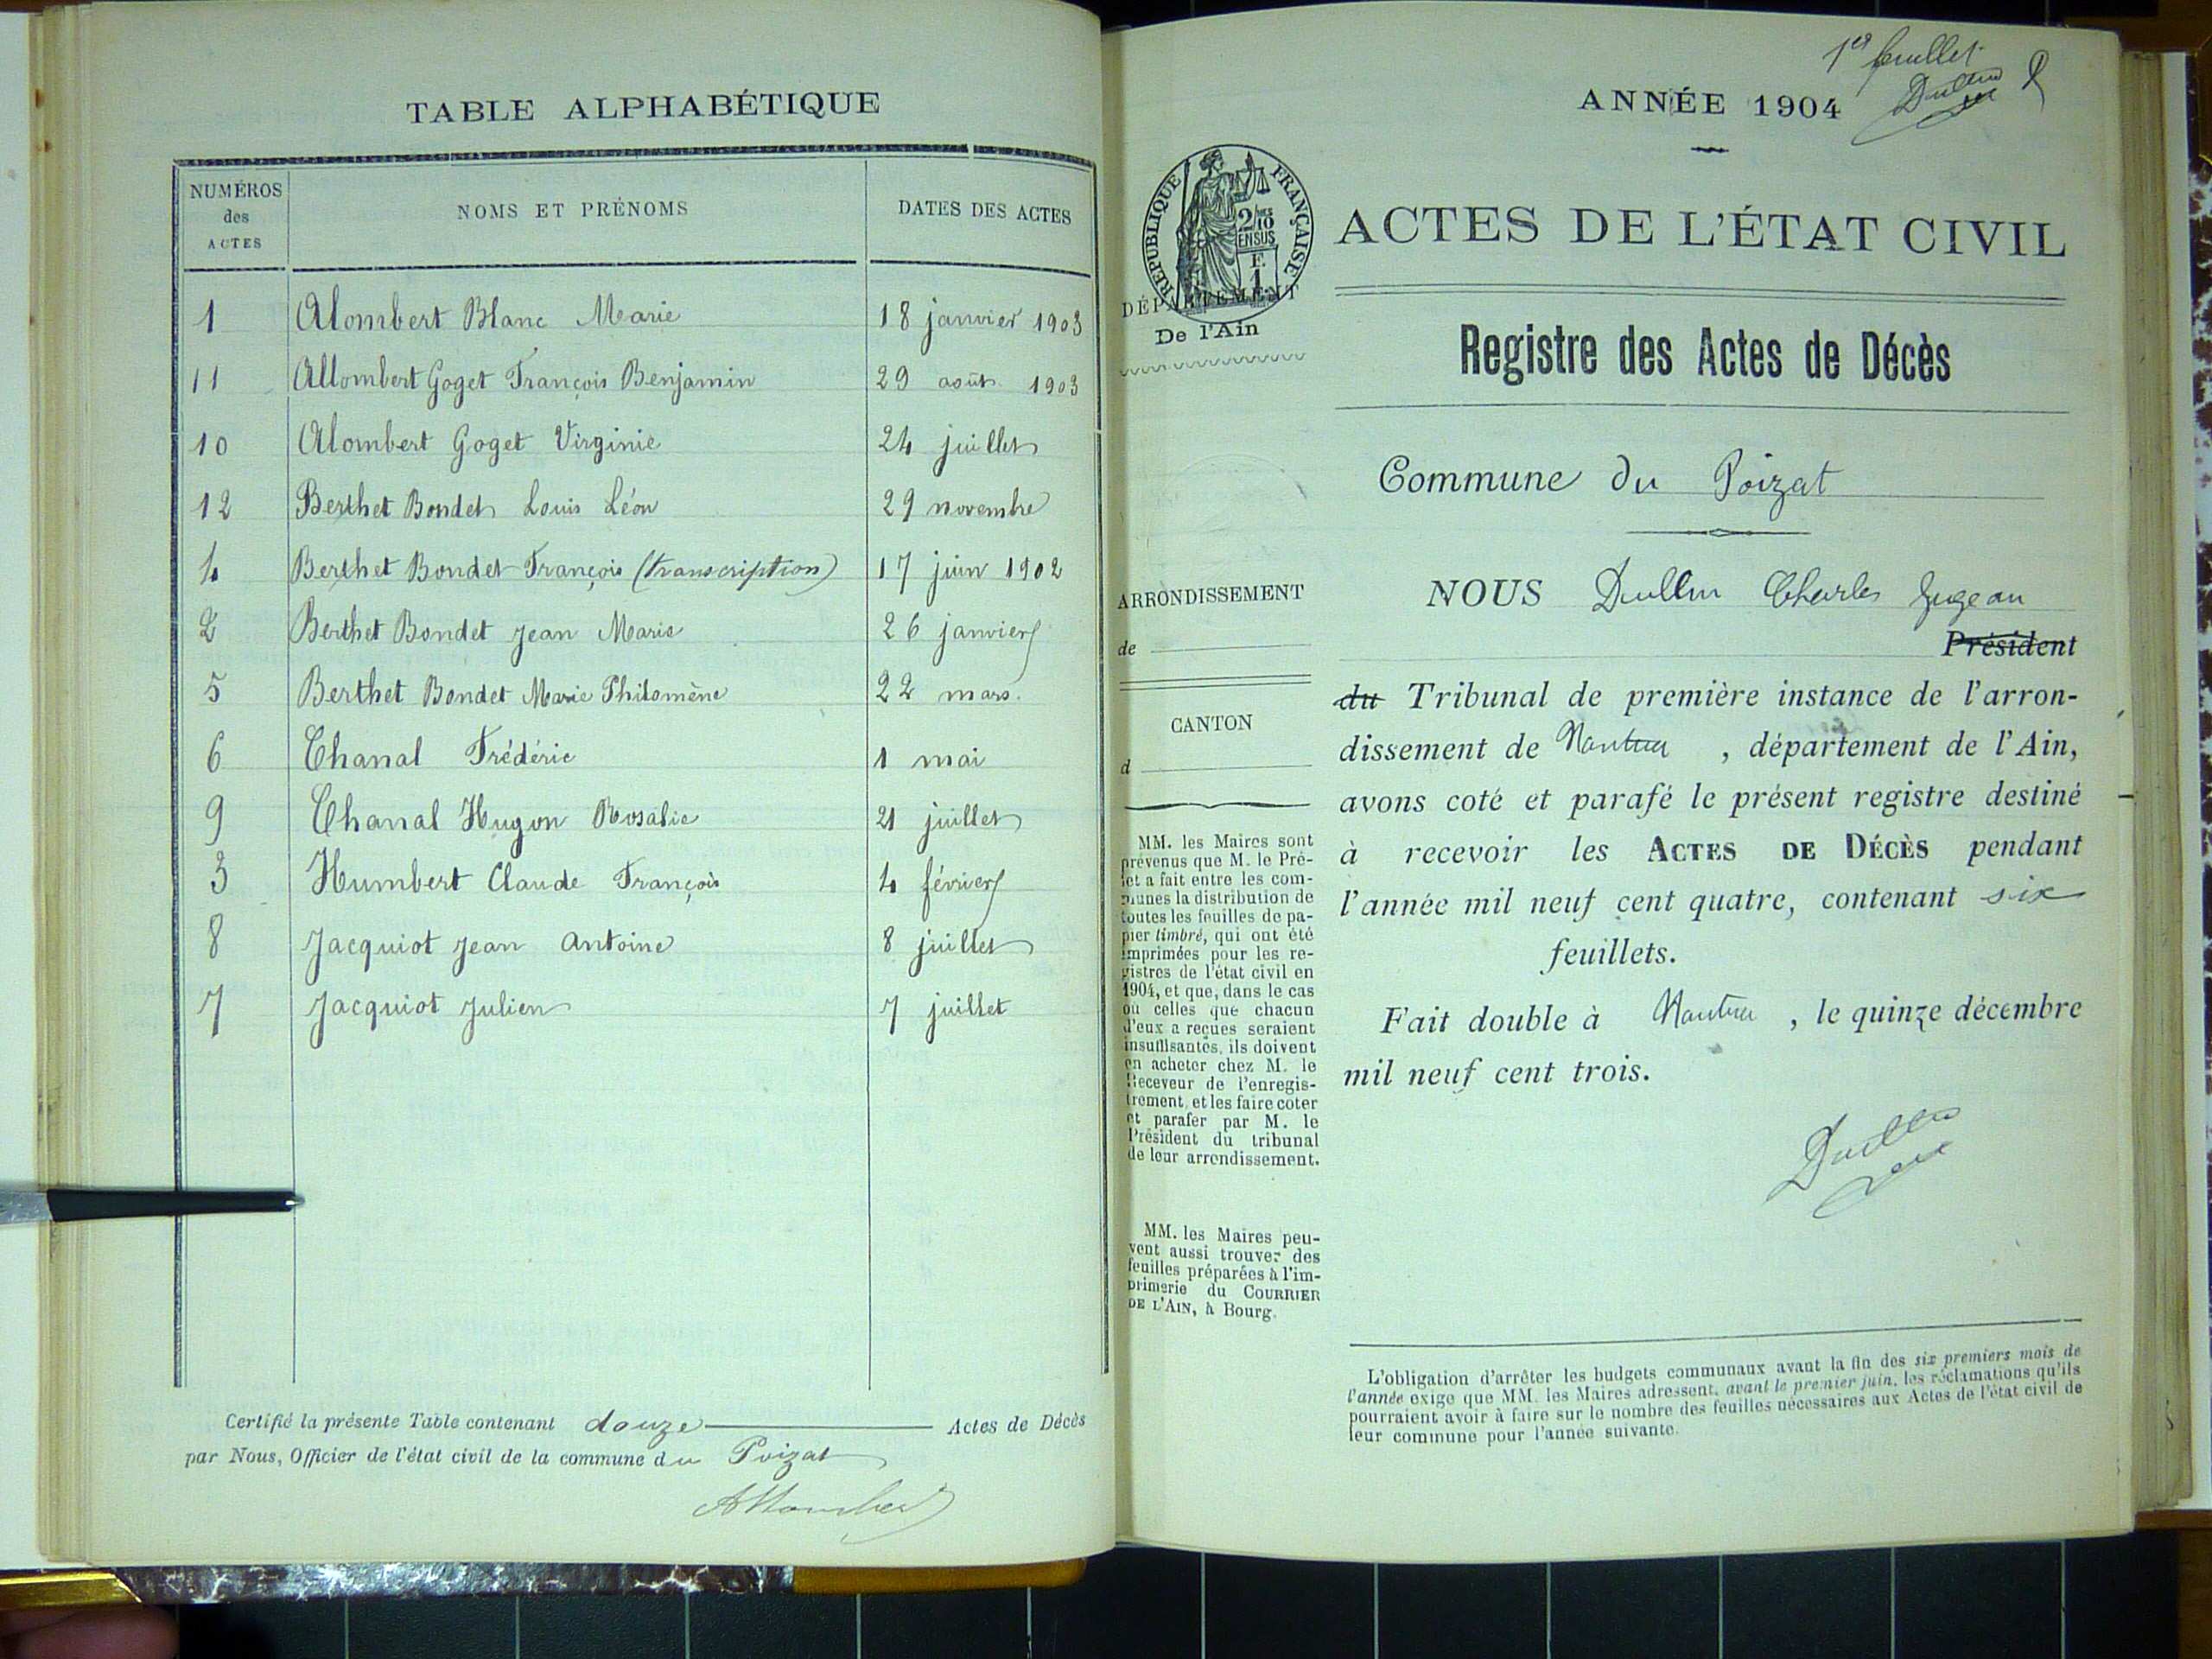 TABLE ALPHABÉTIQUE
NUMÉROS des ACTES NOMS ET PRÉNOMS DATES DES ACTES
1 Alombert Blanc Marie 18 janvier 1903
11 Allombert Goget François Benjamin 29 août 1903
10 Alombert Goget Virginie 24 juillet
12 Berthet Bondet Louis Léon 29 novembre
4 Berthet Bondet François (transcription) 17 juin 1902
2 Berthet Bondet Jean Marie 26 janvier
5 Berthet Bondet Marie Philomène 22 mars.
6 Chanal Frédéric 1 mai
9 Chanal Hugon Rosalie 21 juillet
3 Humbert Claude François 4 février
8 Jacquiot Jean Antoine 8 juillet
7 Jacquiot Julien 7 juillet
Certifié la présente Table contenant douze Actes de Décès
par Nous, Officier de l'état civil de la commune du Poizat
Allombert
1er feuillet
Dullin
ANNÉE 1904
RÉPUBLIQUE FRANÇAISE
2/10 EN SUS
E.
1.
DÉPARTEMENT
De l'Ain
ACTES DE L'ÉTAT CIVIL
Registre des Actes de Décès
Commune du Poizat
ARRONDISSEMENT
de
CANTON
d
MM. les Maires sont
prévenus que M. le Pré-
fet a fait entre les com-
munes la distribution de
toutes les feuilles de pa-
pier timbré, qui ont été
imprimées pour les re-
gistres de l'état civil en
1904, et que, dans le cas
où celles que chacun
d'eux a reçues seraient
insuffisantes, ils doivent
en acheter chez M. le
Receveur de l'enregis-
trement, et les faire coter
et parafer par M. le
Président du tribunal
de leur arrondissement.
MM. les Maires peu-
vent aussi trouver des
feuilles préparées à l'im-
primerie du COURRIER
DE L'AIN, à Bourg.
NOUS Dullin Charles juge au
Président
du Tribunal de première instance de l'arron-
dissement de Nantua , département de l'Ain,
avons coté et parafé le présent registre destiné
à recevoir les ACTES DE DÉCÈS pendant
l'année mil neuf cent quatre, contenant six
feuillets.
Fait double à Nantua , le quinze décembre
mil neuf cent trois.
Dullin
L'obligation d'arrêter les budgets communaux avant la fin des six premiers mois de
l'année exige que MM. les Maires adressent, avant le premier juin, les réclamations qu'ils
pourraient avoir à faire sur le nombre des feuilles nécessaires aux Actes de l'état civil de
leur commune pour l'année suivante.